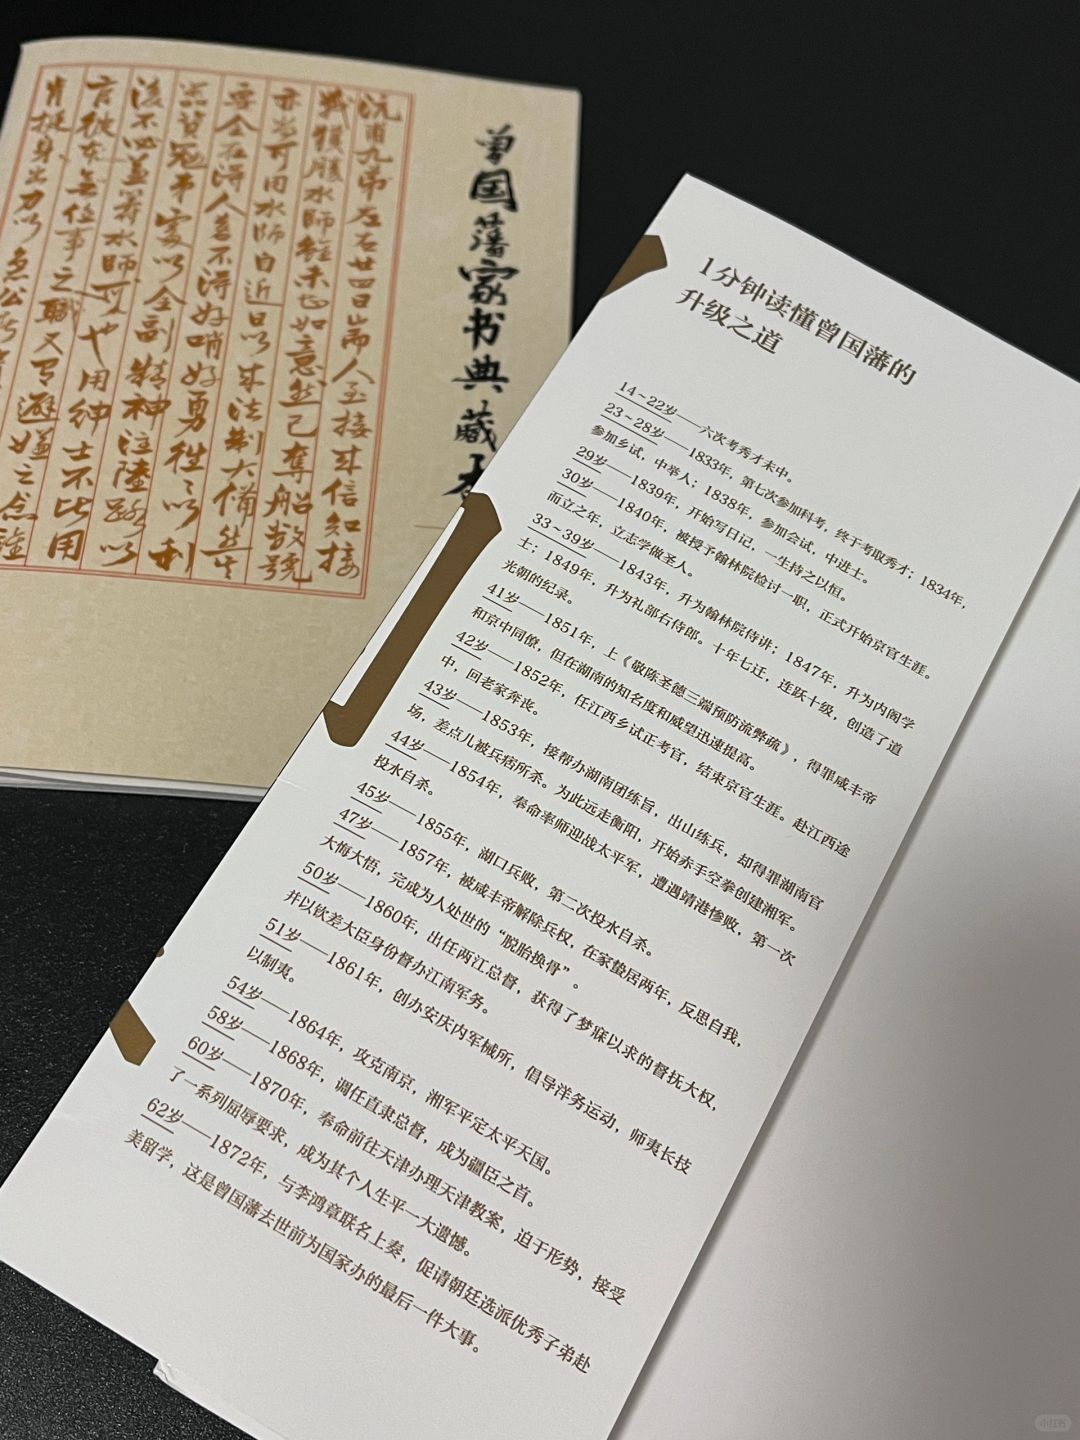 曾国藩家书典藏本
沅甫九弟左右廿四日专人至接来信知接
战获胜水师虽未甚如意然已夺船数号
亦尚可用水师自近日以来法制大备然其
要全在得人若不得好哨好勇往往以利
器资寇弟处以全副精神注陆路以
后不必兼筹水师可也用绅士不比用
1分钟读懂曾国藩的
升级之道
14~22岁——六次考秀才未中。
23~28岁——1833年，第七次参加科考，终于考取秀才；1834年，
参加乡试，中举人；1838年，参加会试，中进士。
29岁——1839年，开始写日记，一生持之以恒。
30岁——1840年，被授予翰林院检讨一职，正式开始京官生涯。
而立之年，立志学做圣人。
33~39岁——1843年，升为翰林院侍讲；1847年，升为内阁学
士；1849年，升为礼部右侍郎。十年七迁，连跃十级，创造了道
光朝的纪录。
41岁——1851年，上《敬陈圣德三端预防流弊疏》，得罪咸丰帝
和京中同僚，但在湖南的知名度和威望迅速提高。
42岁——1852年，任江西乡试正考官，结束京官生涯。赴江西途
中，回老家奔丧。
43岁——1853年，接帮办湖南团练旨，出山练兵，却得罪湖南官
场，差点儿被兵痞所杀。为此远走衡阳，开始赤手空拳创建湘军。
44岁——1854年，奉命率师迎战太平军，遭遇靖港惨败，第一次
投水自杀。
45岁——1855年，湖口兵败，第二次投水自杀。
47岁——1857年，被咸丰帝解除兵权，在家蛰居两年，反思自我，
大悔大悟，完成为人处世的“脱胎换骨”。
50岁——1860年，出任两江总督，获得了梦寐以求的督抚大权，
并以钦差大臣身份督办江南军务。
51岁——1861年，创办安庆内军械所，倡导洋务运动，师夷长技
以制夷。
54岁——1864年，攻克南京，湘军平定太平天国。
58岁——1868年，调任直隶总督，成为疆臣之首。
60岁——1870年，奉命前往天津办理天津教案，迫于形势，接受
了一系列屈辱要求，成为其个人生平一大遗憾。
62岁——1872年，与李鸿章联名上奏，促请朝廷选派优秀子弟赴
美留学，这是曾国藩去世前为国家办的最后一件大事。
小红书